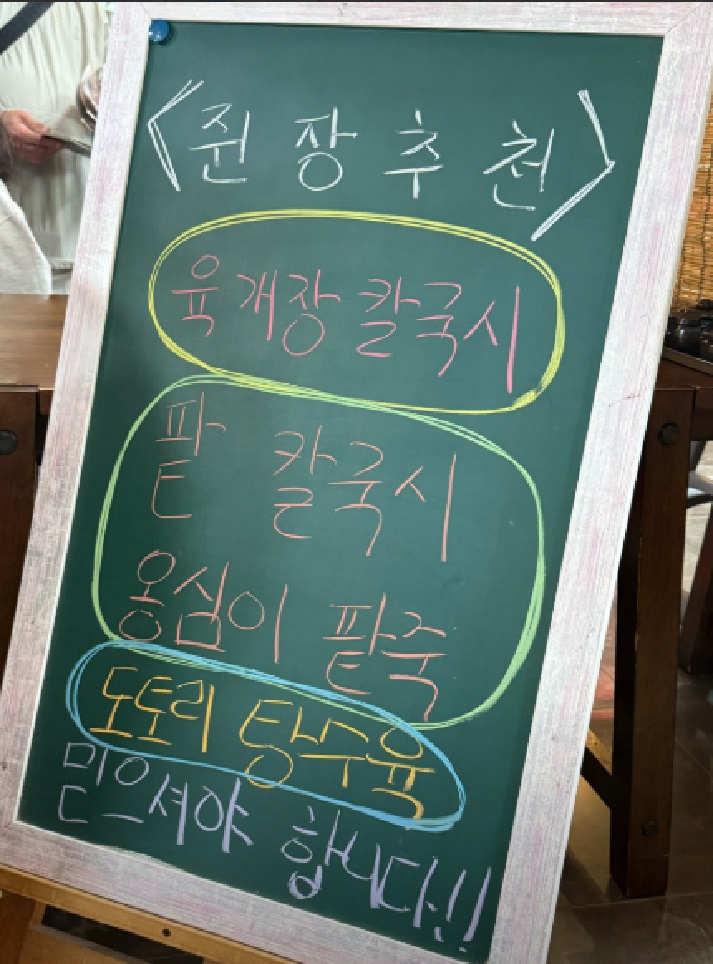 <쥔장추천>
육개장칼국시
팥 칼국시
옹심이 팥죽
도토리 탕수육
믿으셔야 합니다!!